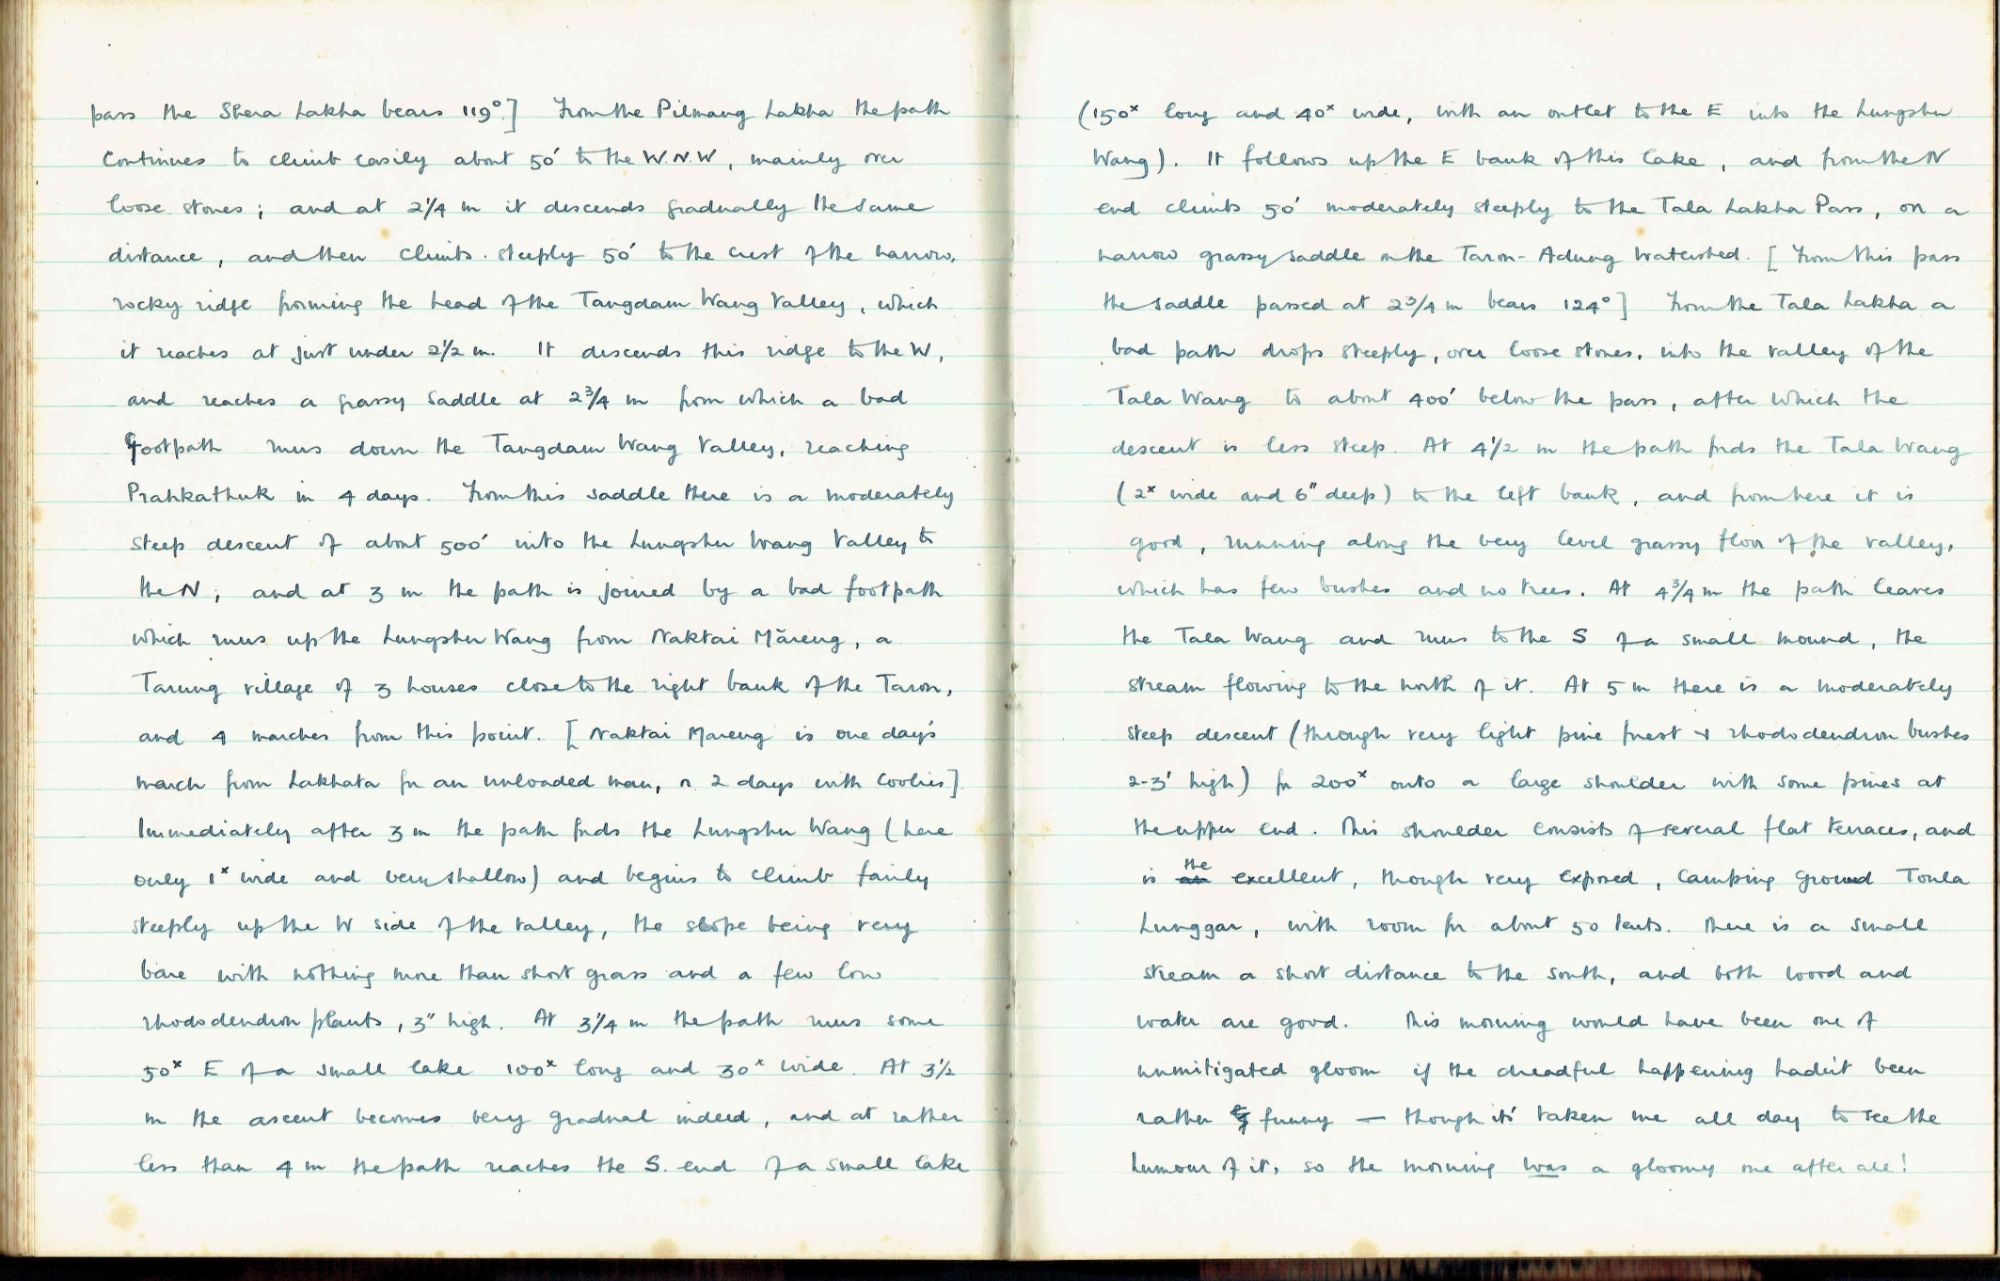 pass the Shera Lakha bears 119°] From the Pilmang Lakha the path
continues to climb easily about 50' to the W.N.W, mainly over
loose stones; and at 2¼ m it descends gradually the same
distance, and then climbs steeply 50' to the crest of the narrow,
rocky ridge forming the head of the Tangdam Wang Valley, which
it reaches at just under 2½ m. It descends this ridge to the W,
and reaches a grassy saddle at 2¾ m from which a bad
footpath runs down the Tangdam Wang Valley, reaching
Prahkathuk in 4 days. From this saddle there is a moderately
steep descent of about 500' into the Lungshu Wang Valley to
the N; and at 3 m the path is joined by a bad footpath
which runs up the Lungshu Wang from Naktai Māreng, a
Tarung village of 3 houses close to the right bank of the Taron,
and 4 marches from this point. [Naktai Mareng is one day's
march from Lakhata for an unloaded man, or 2 days with coolies]
Immediately after 3 m the path fords the Lungshu Wang (here
only 1ˣ wide and very shallow) and begins to climb fairly
steeply up the W side of the valley, the slope being very
bare with nothing more than short grass and a few low
rhododendron plants, 3" high. At 3¼ m the path runs some
50ˣ E of a small lake 100ˣ long and 30ˣ wide. At 3½
m the ascent becomes very gradual indeed, and at rather
less than 4 m the path reaches the S. end of a small lake
(150ˣ long and 40ˣ wide, with an outlet to the E into the Lungshu
Wang). It follows up the E bank of this lake, and from the N
end climbs 50' moderately steeply to the Tala Lakha Pass, on a
narrow grassy saddle on the Taron-Adung watershed. [From this pass
the saddle passed at 2¾ m bears 124°] From the Tala Lakha a
bad path drops steeply, over loose stones, into the valley of the
Tala Wang to about 400' below the pass, after which the
descent is less steep. At 4½ m the path fords the Tala Wang
(2ˣ wide and 6" deep) to the left bank, and from here it is
good, running along the very level grassy floor of the valley,
which has few bushes and no trees. At 4¾ m the path leaves
the Tala Wang and runs to the S of a small mound, the
stream flowing to the north of it. At 5 m there is a moderately
steep descent (through very light pine forest & rhododendron bushes
2-3' high) for 200ˣ onto a large shoulder with some pines at
the upper end. This shoulder consists of several flat terraces, and
is an the excellent, though very exposed, camping ground Tonla
Lunggar, with room for about 50 tents. There is a small
stream a short distance to the south, and both wood and
water are good. This morning would have been one of
unmitigated gloom if the dreadful happening hadn't been
rather funny — though it's taken me all day to see the
humour of it, so the morning was a gloomy one after all!